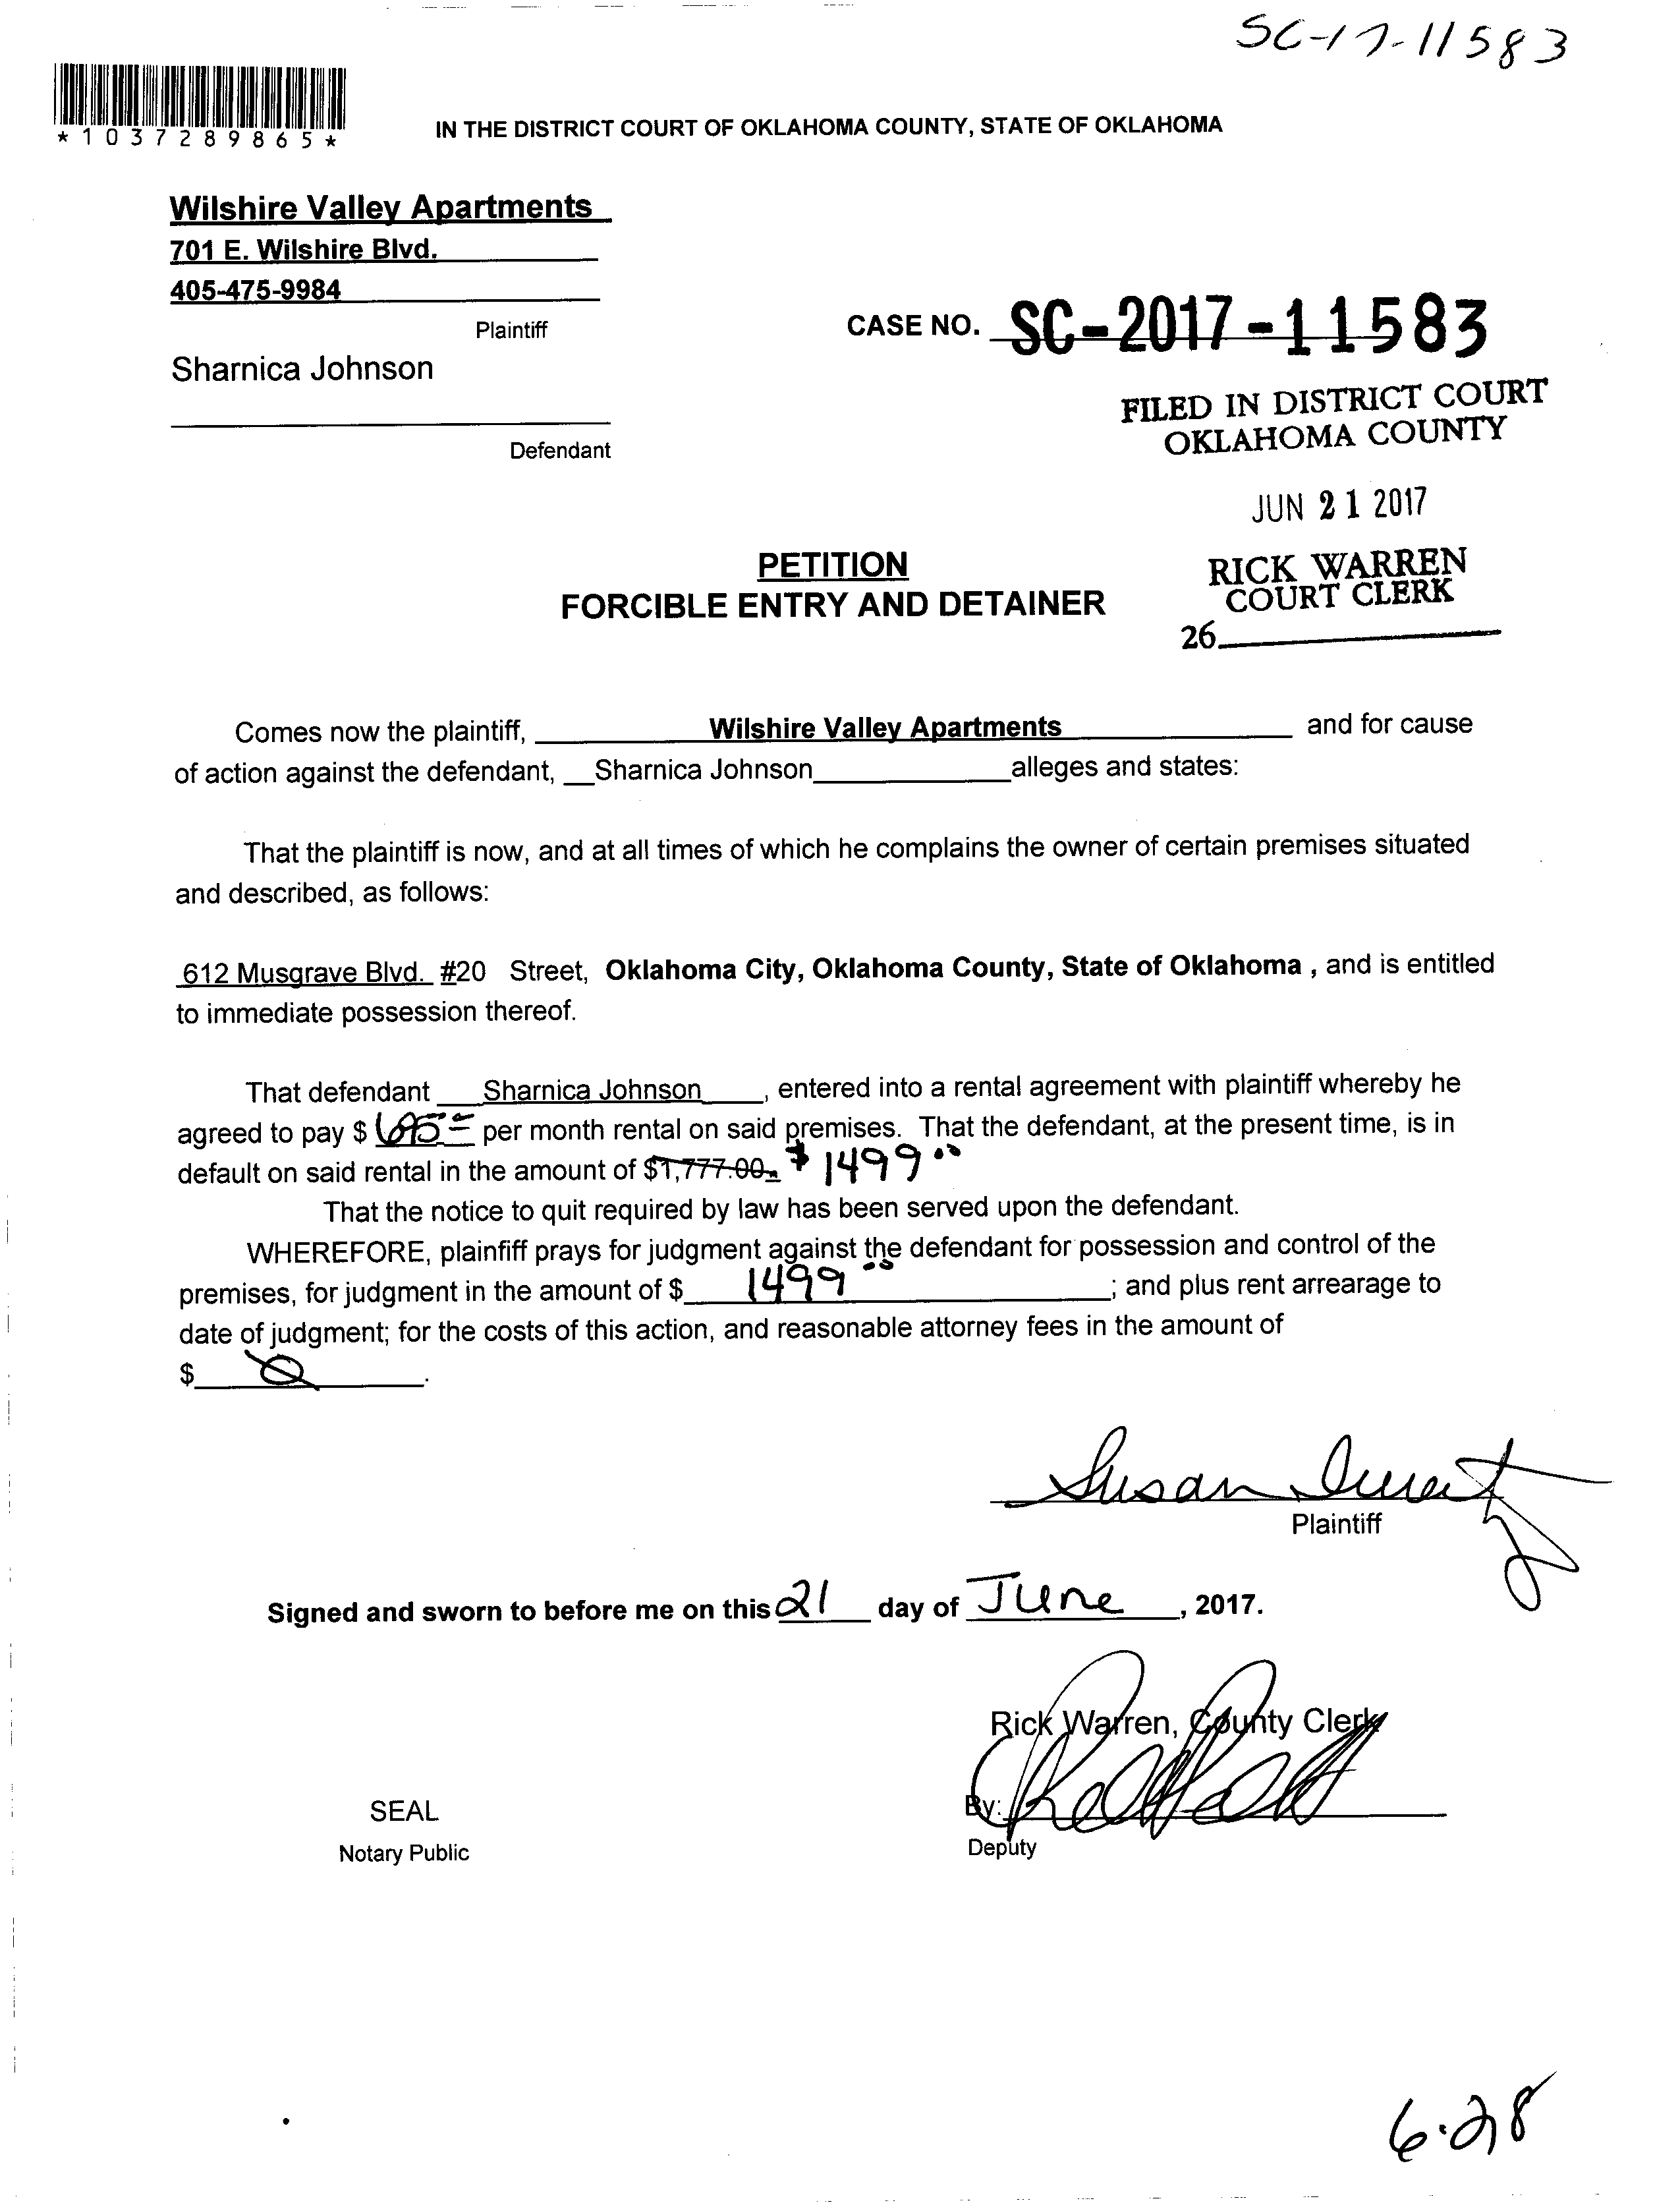 SC-17-11583
*1037289865*
IN THE DISTRICT COURT OF OKLAHOMA COUNTY, STATE OF OKLAHOMA
Wilshire Valley Apartments
701 E. Wilshire Blvd.
405-475-9984
Plaintiff
CASE NO. SC-2017-11583
Sharnica Johnson
Defendant
FILED IN DISTRICT COURT
OKLAHOMA COUNTY
JUN 21 2017
RICK WARREN
COURT CLERK
26
PETITION
FORCIBLE ENTRY AND DETAINER
Comes now the plaintiff, Wilshire Valley Apartments and for cause
of action against the defendant, Sharnica Johnson alleges and states:
That the plaintiff is now, and at all times of which he complains the owner of certain premises situated
and described, as follows:
612 Musgrave Blvd. #20 Street, Oklahoma City, Oklahoma County, State of Oklahoma , and is entitled
to immediate possession thereof.
That defendant Sharnica Johnson, entered into a rental agreement with plaintiff whereby he
agreed to pay $ per month rental on said premises. That the defendant, at the present time, is in
default on said rental in the amount of $1,777.00 $1499.00
That the notice to quit required by law has been served upon the defendant.
WHEREFORE, plainfiff prays for judgment against the defendant for possession and control of the
premises, for judgment in the amount of $ 1499.00; and plus rent arrearage to
date of judgment; for the costs of this action, and reasonable attorney fees in the amount of
$ 0.
Susan
Plaintiff
Signed and sworn to before me on this 21 day of June, 2017.
Rick Warren, County Clerk
By:
Deputy
SEAL
Notary Public
6.28